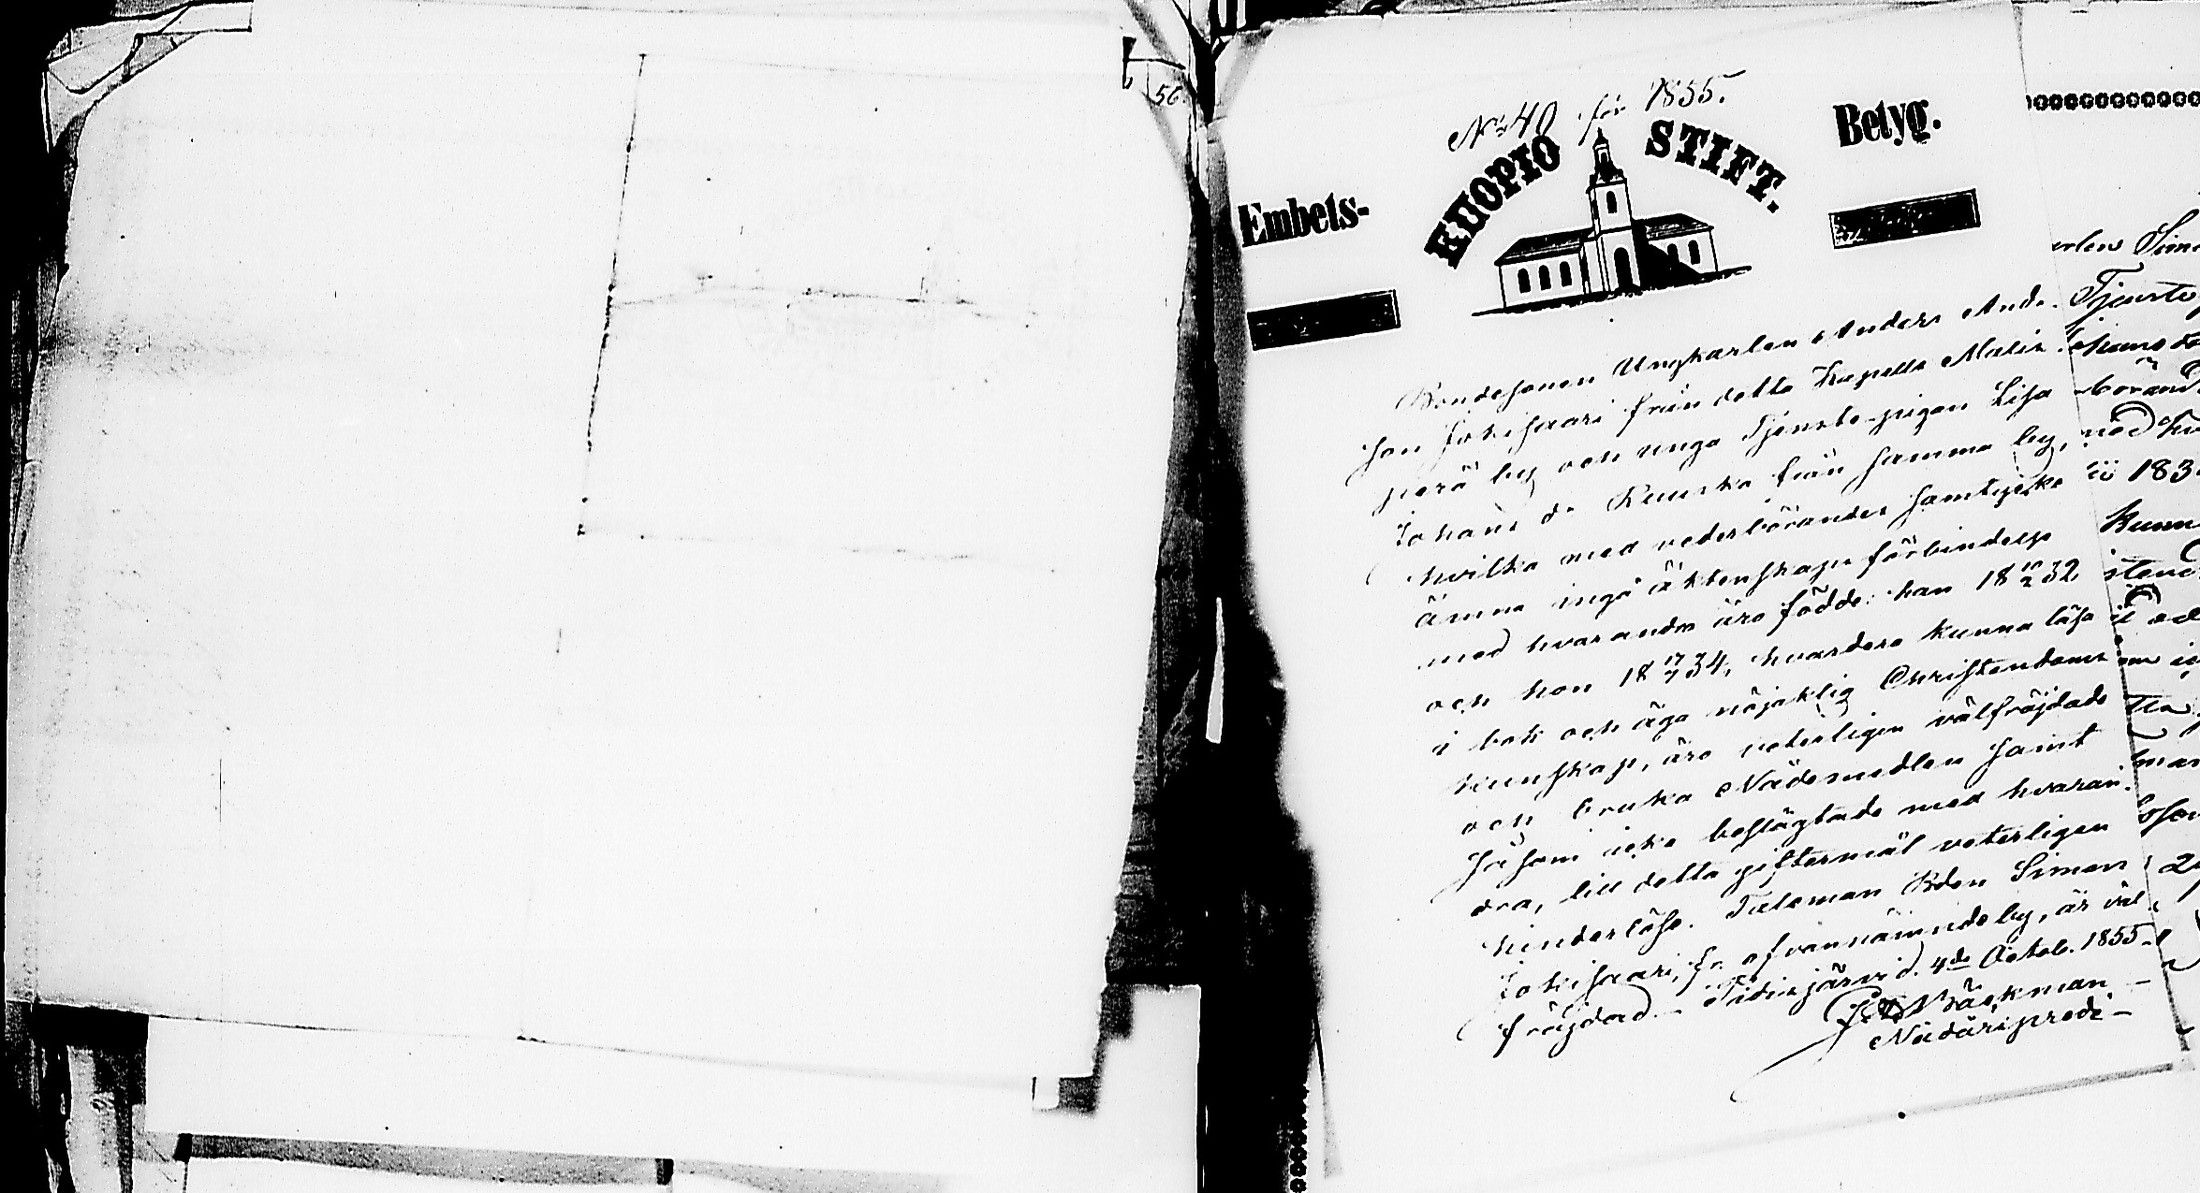 56.
No 40 för 1855.
KUOPIO STIFT.
Embets- Betyg.
Bondesonen Ungkarlen Anders Ands
son Jokisaari från detta Kapells
perä by och unga Tjenste-pigan Lisa
Johans dr från samma by,
hvilka med vederbörandes samtycke
ämna ingå äktenskaps förbindelse
med hvarandra äro födde: han 18 2 32
och hon 18 17/7 34, hvardera kunna läsa
i bok och äga nöjaktig Christendoms
kunskap, äro veterligen välfräjdade
och bruka Nådemedlen samt
såsom icke beslägtade med hvaran-
dra, till detta giftermål veterligen
hinderlöse. Taleman Bden Simon
Jokisaari, fr. ofvannämnde by, är väl
fräjdad. d. 4de Octob. 1855.
Bäckman
erlen Sim
Tjenste
börand
183
Kunn
och